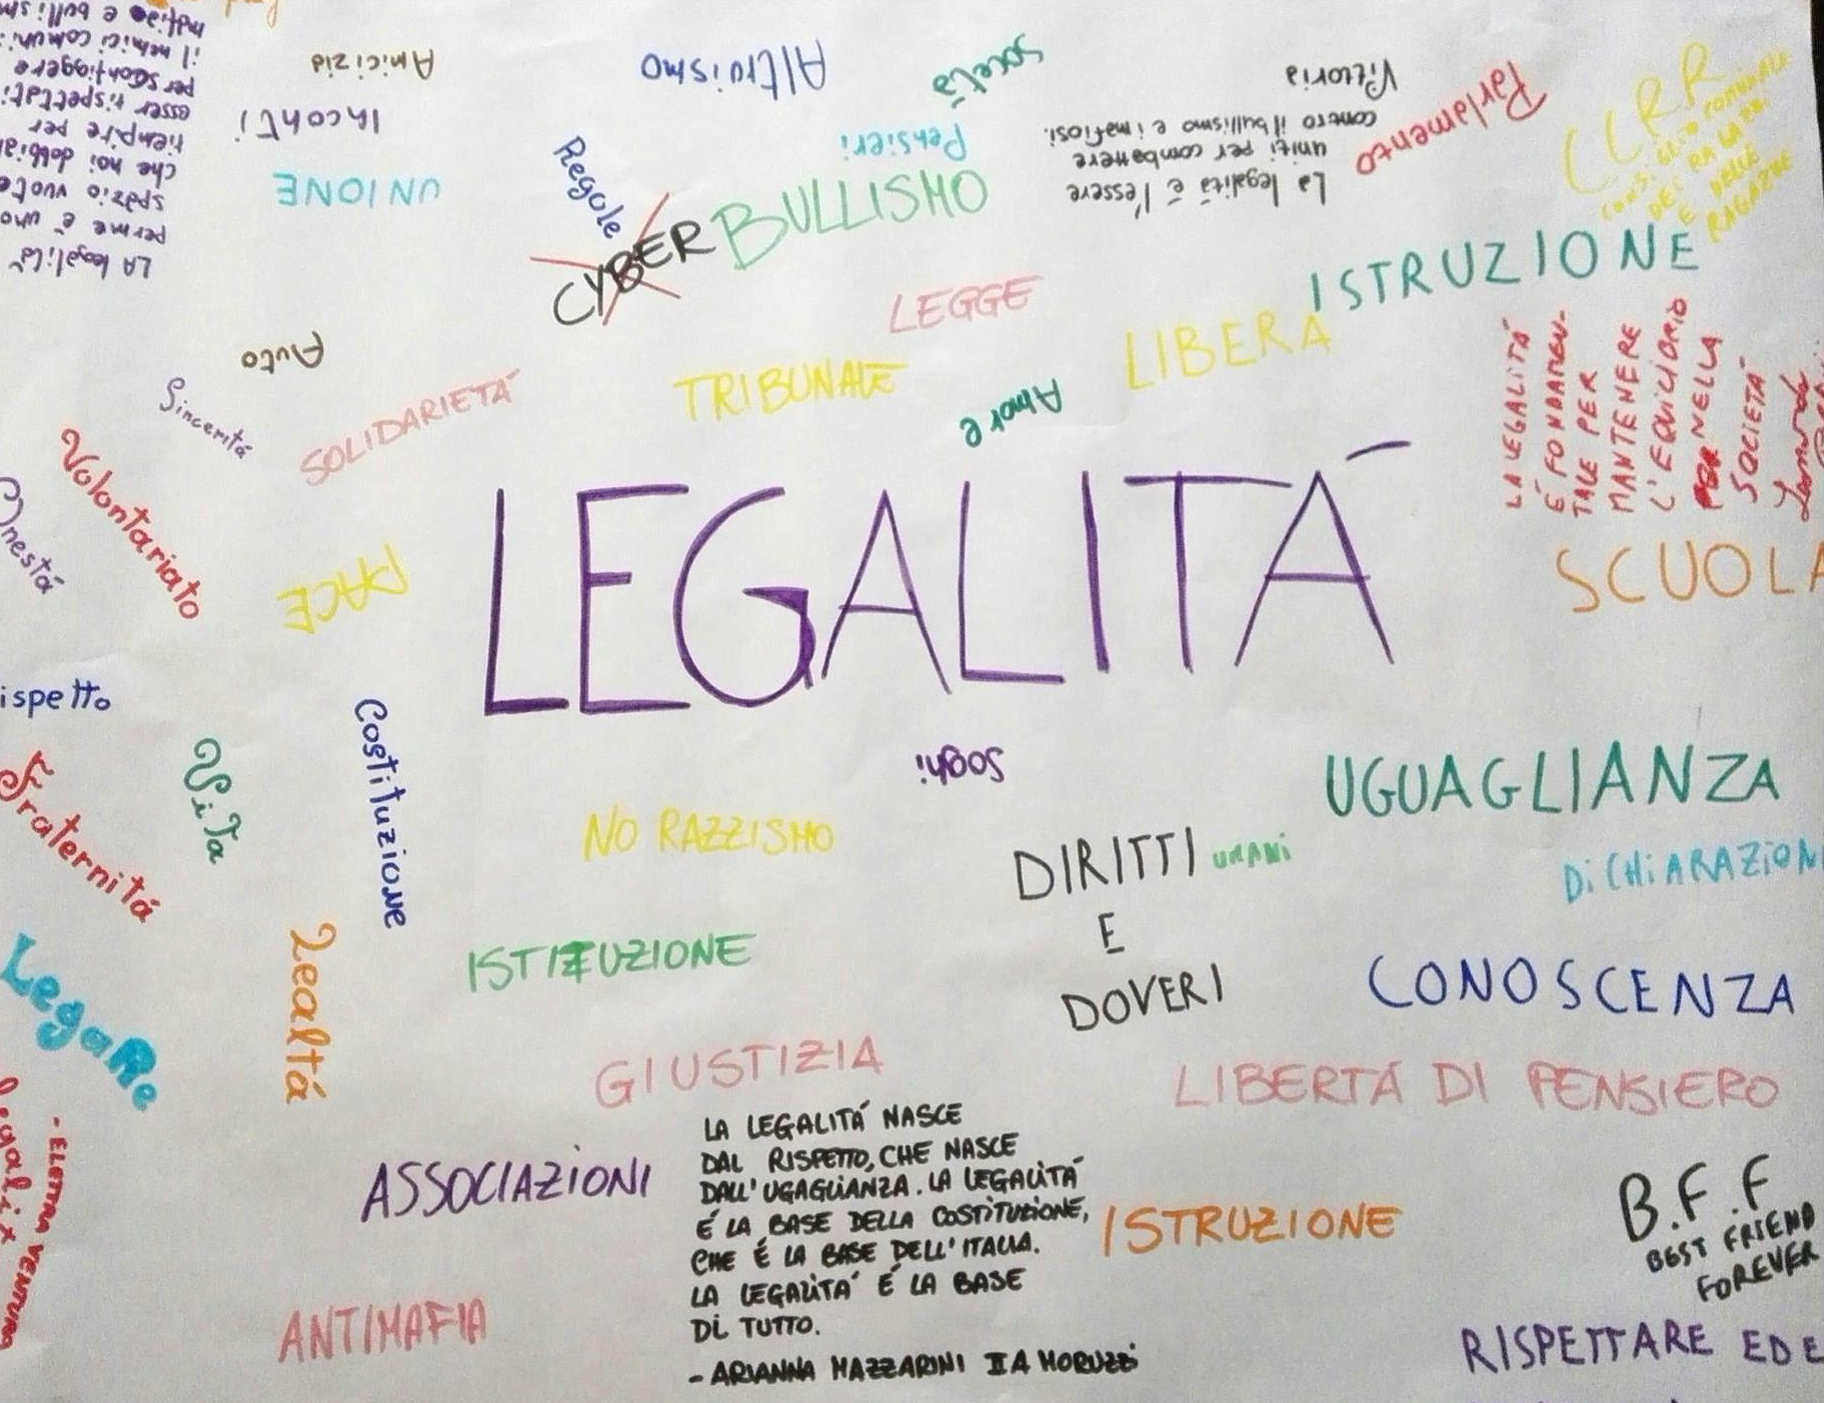 Amicizia
Altruismo
società
Incontri
Pensieri
UNIONE
Regole
CYBER BULLISMO
La legalità è l'essere
uniti per combattere
contro il bullismo e i mafiosi.
Vittoria
Parlamento
CCRR
CONSIGLIO COMUNALE
DEI RA
E DELLE
RAGAZZE
LA legalità
per me è uno
spazio vuoto
che noi dobbia
riempire per
esser rispettati
per sconfiggere
il nemici comuni:
mafia e bullism
ISTRUZIONE
LEGGE
LIBERA
Auto
TRIBUNALE
Amore
SOLIDARIETÁ
Sincerità
Volontariato
Onestá
LA LEGALITÁ
É FONDAMEN-
TALE PER
MANTENERE
L'EQUILIBRIO
NELLA
SOCIETÁ
LEGALITÁ
PACE
SCUOLA
ispetto
Vita
Costituzione
Soghi
UGUAGLIANZA
Fraternitá
NO RAZZISMO
DIRITTI UMANI
E
DOVERI
DiCHiARAZiON
Lealtá
ISTITUZIONE
CONOSCENZA
LegaRe
GIUSTIZIA
LIBERTÁ DI PENSIERO
- ELETTRA VENTURA
ASSOCIAZIONI
LA LEGALITÁ NASCE
DAL RISPETTO, CHE NASCE
DALL'UGAGLIANZA. LA LEGALITÁ
É LA BASE DELLA COSTITUZIONE,
CHE É LA BASE DELL'ITALIA.
LA LEGALITÁ É LA BASE
DI TUTTO.
- ARIANNA MAZZARINI II A MORUZZI
ISTRUZIONE
B.F.F
BEST FRIEND
FOREVER
ANTIMAFIA
RISPETTARE ED E